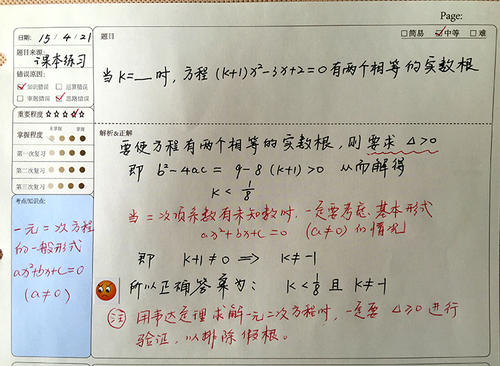 Page:
日期: 15/4/21
题目
□简易 ☑中等 □难
题目来源:
课本练习
错误原因:
☑知识错误 □运算错误
□审题错误 ☑思路错误
重要程度 ☆☆☆☆☆
掌握程度 未掌握 掌握
第一次复习
第二次复习
第三次复习
考点/知识点:
一元二次方程
的一般形式
ax²+bx+c=0
(a≠0)
当 k=__时,方程 (k+1)x²-3x+2=0 有两个相等的实数根
解析&正解
要使方程有两个相等的实数根,则要求 △>0
即 b²-4ac = 9-8(k+1)>0 从而解得
k<1/8
当二次项系数有未知数时,一定要考虑基本形式
ax²+bx+c=0 (a≠0)的情况
即 k+1≠0 ⟹ k≠-1
所以正确答案为: k<1/8 且 k≠-1
注 用韦达定理求解一元二次方程时,一定要 △≥0 进行
验证,以排除假根。